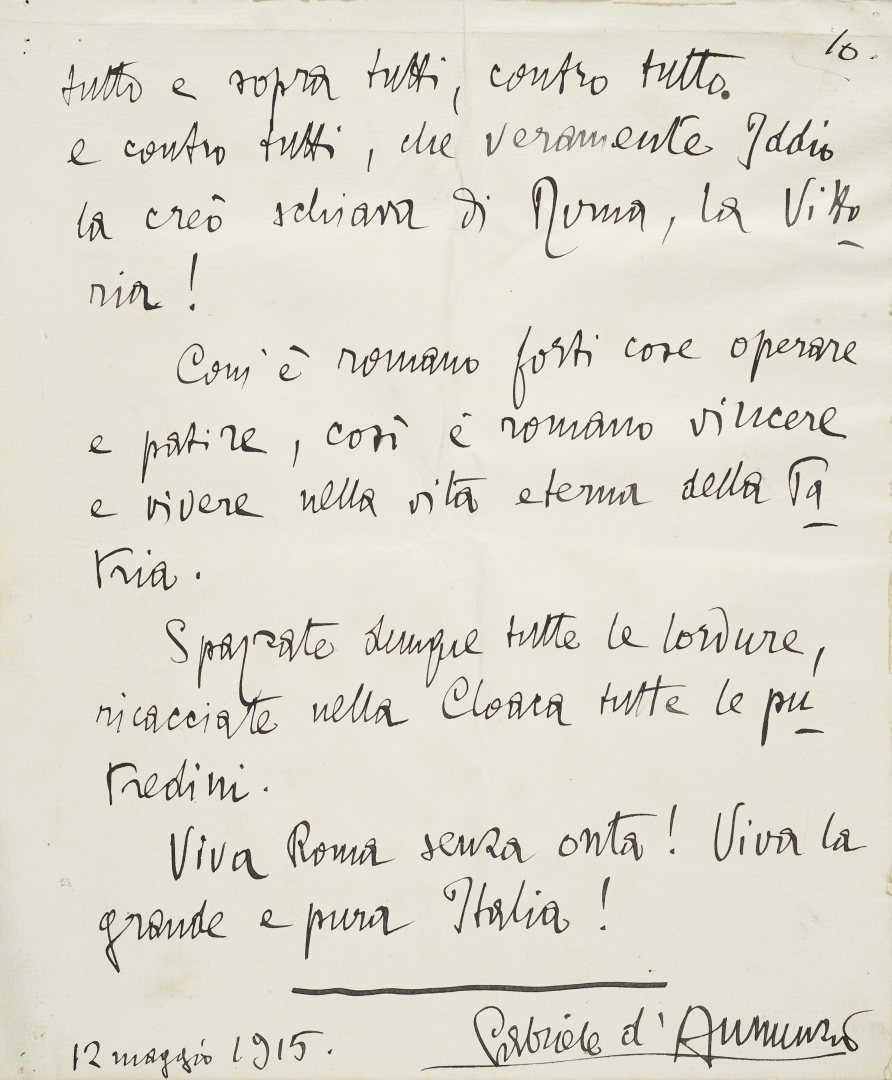 10.
tutto e sopra tutti, contro tutto
e contro tutti, che veramente Iddio
la creò schiava di Roma, la Vitto
ria!
Com' è romano forti cose operare
e patire, così è romano vincere
e vivere nella vita eterna della Pa
tria.
Spazzate dunque tutte le lordure,
ricacciate nella Cloaca tutte le pu
tredini.
Viva Roma senza onta! Viva la
grande e pura Italia!
12 maggio 1915.
Gabriele d'Annunzio